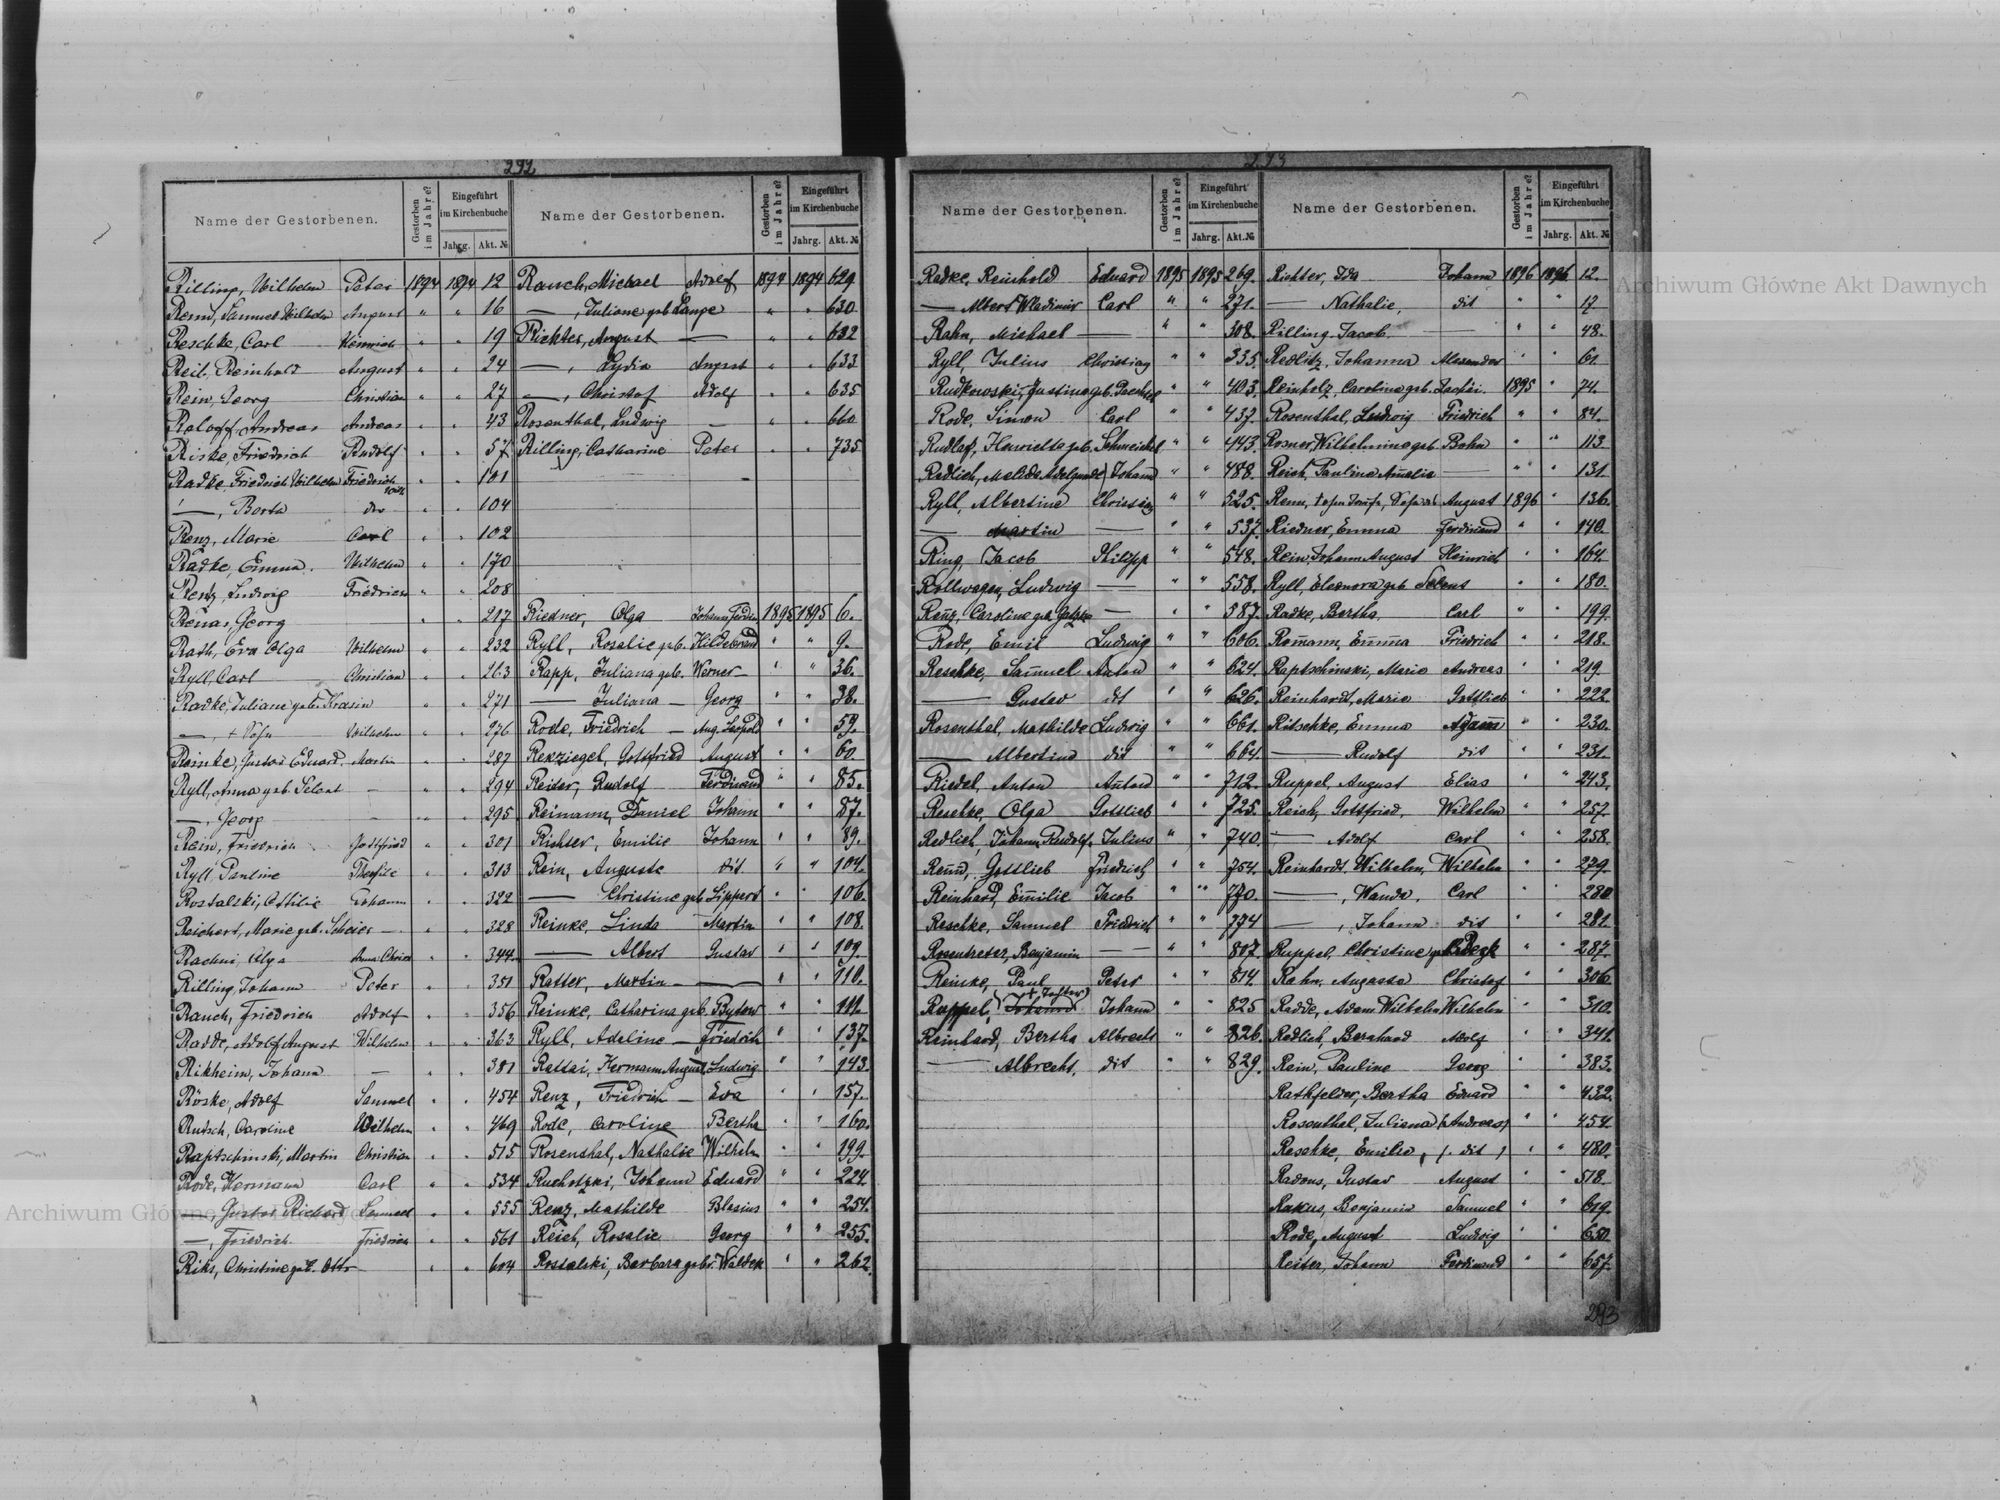 292
Name der Gestorbenen. Gestorben im Jahre? Eingeführt im Kirchenbuche Jahrg. Akt. №
Name der Gestorbenen. Gestorben im Jahre? Eingeführt im Kirchenbuche Jahrg. Akt. №
Rilling, Wilhelm Peter 1894 1894 12
Renn, Samuel Wilhelm August " " 16
Reschke, Carl Heinrich " " 19
Reil, Reinhold August " " 24
Rein, Georg Christian " " 27
Raloff, Andreas Andreas " " 43
Riske, Friedrich Rudolf " " 57
Radke, Friedrich Wilhelm Friedrich " " 101
—, Berta dto " " 104
Renz, Marie Carl " " 102
Radke, Emma Wilhelm " " 170
Rentz, Ludwig Friedrich " " 208
Georg 217
Rath, Eva Olga Wilhelm " " 232
Ryll, Carl Christian " " 263
Radke, Juliane geb. Krasin " " 271
— Wilhelm " " 276
Reinke, Gustav Eduard Martin " " 287
Ryll, Anna geb. — " " 294
—, Georg — " " 295
Rein, Friedrich Gottfried " " 301
Ryll, Pauline " " 313
Rostalski, Ottilie Johann " " 322
Reichert, Marie geb. — " " 328
Olga " " 344
Rilling, Johann Peter " " 351
Rauch, Friedrich Adolf " " 356
Radde, Adolf August Wilhelm " " 363
Rikheim, Johann — " " 381
Röske, Adolf Samuel " " 454
Rutsch, Caroline Wilhelm " " 469
Raptschinski, Martin Christian " " 515
Rode, Hermann Carl " " 534
—, Gustav Richard Samuel " " 555
—, Friedrich Friedrich " " 561
Riks, Christine geb. Otto " " 604
Rauch, Michael Adolf 1894 1894 629
—, Juliane geb. Lange " " 630
Richter, August — " " 632
—, Lydia August " " 633
—, Christof Adolf " " 635
Rosenthal, Ludwig — " " 660
Rilling, Catharine Peter " " 735
Riedner, Olga Johann Ferdin 1895 1895 6.
Ryll, Rosalie geb. Hildebrand " " 9.
Rapp, Juliana geb. Werner — " " 36.
— Juliana — Georg " " 38.
Rode, Friedrich — Aug. Leopold " " 59.
Renziegel, Gottfried August " " 60.
Reiter, Rudolf Ferdinand " " 85.
Reimann, Daniel Johann " " 87.
Richter, Emilie Johann " " 89.
Rein, Auguste dit. " " 104.
— Christine geb. Lippert " " 106.
Reinke, Linda Martin " " 108.
— Albert Gustav " " 109.
Ratter, Martin — " " 110.
Reinke, Catharina geb. Bytow " " 111.
Ryll, Adeline — Friedrich " " 137.
Rattai, Hermann August, Ludwig " " 143.
Renz, Friedrich — Eva " " 157.
Rode, Caroline Bertha " " 160.
Rosenthal, Nathalie Wilhelm " " 199.
Ruchotzki, Johann Eduard " " 224.
Renz, Mathilde Blasius " " 254.
Reich, Rosalie Georg " " 255.
Rostalski, Barbara gebr. Waldek " " 262.
293
Name der Gestorbenen. Gestorben im Jahre? Eingeführt im Kirchenbuche Jahrg. Akt. №
Name der Gestorbenen. Gestorben im Jahre? Eingeführt im Kirchenbuche Jahrg. Akt. №
Radke, Reinhold Eduard 1895 1895 269.
— Albert Wladimir Carl " " 271.
Rahn, Michael — " " 308.
Ryll, Julius Christian " " 335.
Rudkowski, Justina geb. " " 403.
Rode, Simon Carl " " 437.
Henriette geb. Schmeichel " " 443.
Redlich, Johann " " 488.
Ryll, Albertine Christian " " 525.
— Martin — " " 537.
Ring, Jacob Philipp " " 548.
Rollwagen, Ludwig — " " 558.
Renz, Caroline geb. — " " 587.
Rode, Emil Ludwig " " 606.
Reschke, Samuel Anton " " 624.
— Gustav dit " " 626.
Rosenthal, Mathilde Ludwig " " 661.
— Albertine dit " " 664.
Riedel, Anton Anton " " 712.
Reschke, Olga Gottlieb " " 725.
Redlich, Johann Rudolf, Julius " " 740.
Renn, Gottlieb Friedrich " " 754.
Reinhard, Emilie Jacob " " 770.
Reschke, Samuel Friedrich " " 774
Rosentreter, Benjamin — " " 807.
Reinke, Paul Peter " " 814.
Rappel, Johann (+ Tochter) Johann " " 825
Reinhard, Bertha Albrecht " " 826.
— Albrecht, dit " " 829.
Richter, Ida Johann 1896 1896 12.
— Nathalie, dit " " 17.
Rilling, Jacob. — " " 48.
Redlitz, Johanna Alexander " " 61.
Reinholz, Caroline geb. 1895 " 74.
Rosenthal, Ludwig Friedrich " " 84.
Rosner, Wilhelmine geb. Bohn " " 113
Reich, Pauline Amalia — " " 131.
Renn, August 1896 " 136.
Riedner, Emma Ferdinand " " 140.
Rein, Johann August Heinrich " " 164.
Ryll, Eleonora geb. " " 180.
Radke, Bertha. Carl " " 199.
Romann, Emma Friedrich " " 218.
Raptschinski, Marie Andreas " " 219.
Reinhardt, Marie Gottlieb " " 222.
Ritschke, Emma Adam " " 230.
— Rudolf dit " " 231.
Ruppel, August Elias " " 243.
Reich, Gottfried, Wilhelm " " 257.
— Adolf Carl " " 258.
Reinhardt, Wilhelm, Wilhelm " " 279.
—, Wanda, Carl " " 280
—, Johann dit " " 281.
Ruppel, Christine geb. " " 287.
Rahn, Augusta Christof " " 306.
Radde, Adam Wilhelm Wilhelm " " 310.
Redlich, Bernhard Adolf " " 341.
Rein, Pauline Georg " " 383.
Rathfelder, Bertha Eduard " " 432.
Rosenthal, Juliana (Andreas) " " 454.
Reschke, Emilie, (. dit ) " " 480.
Radons, Gustav August " " 518.
Rakus, Benjamin Samuel " " 619.
Rode, August Ludwig " " 650.
Reiter, Johann Ferdinand " " 657.
293
Archiwum Główne Akt Dawnych
Archiwum Główne Akt Dawnych